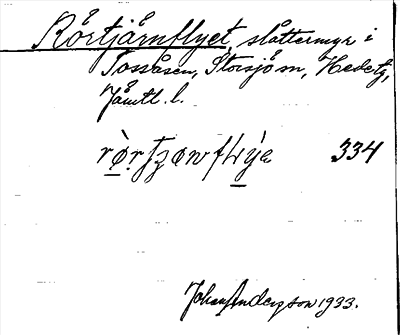 Rörtjärnflyet, slåttermyr i
Tossåsen, Storsjö sn, Hede tg,
Jämtl. l.
334
Johan Anderson 1933.